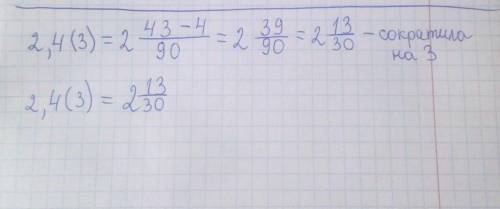 2,4(3) = 2 43-4/90 = 2 39/90 = 2 13/30 - сократила на 3
2,4(3) = 2 13/30